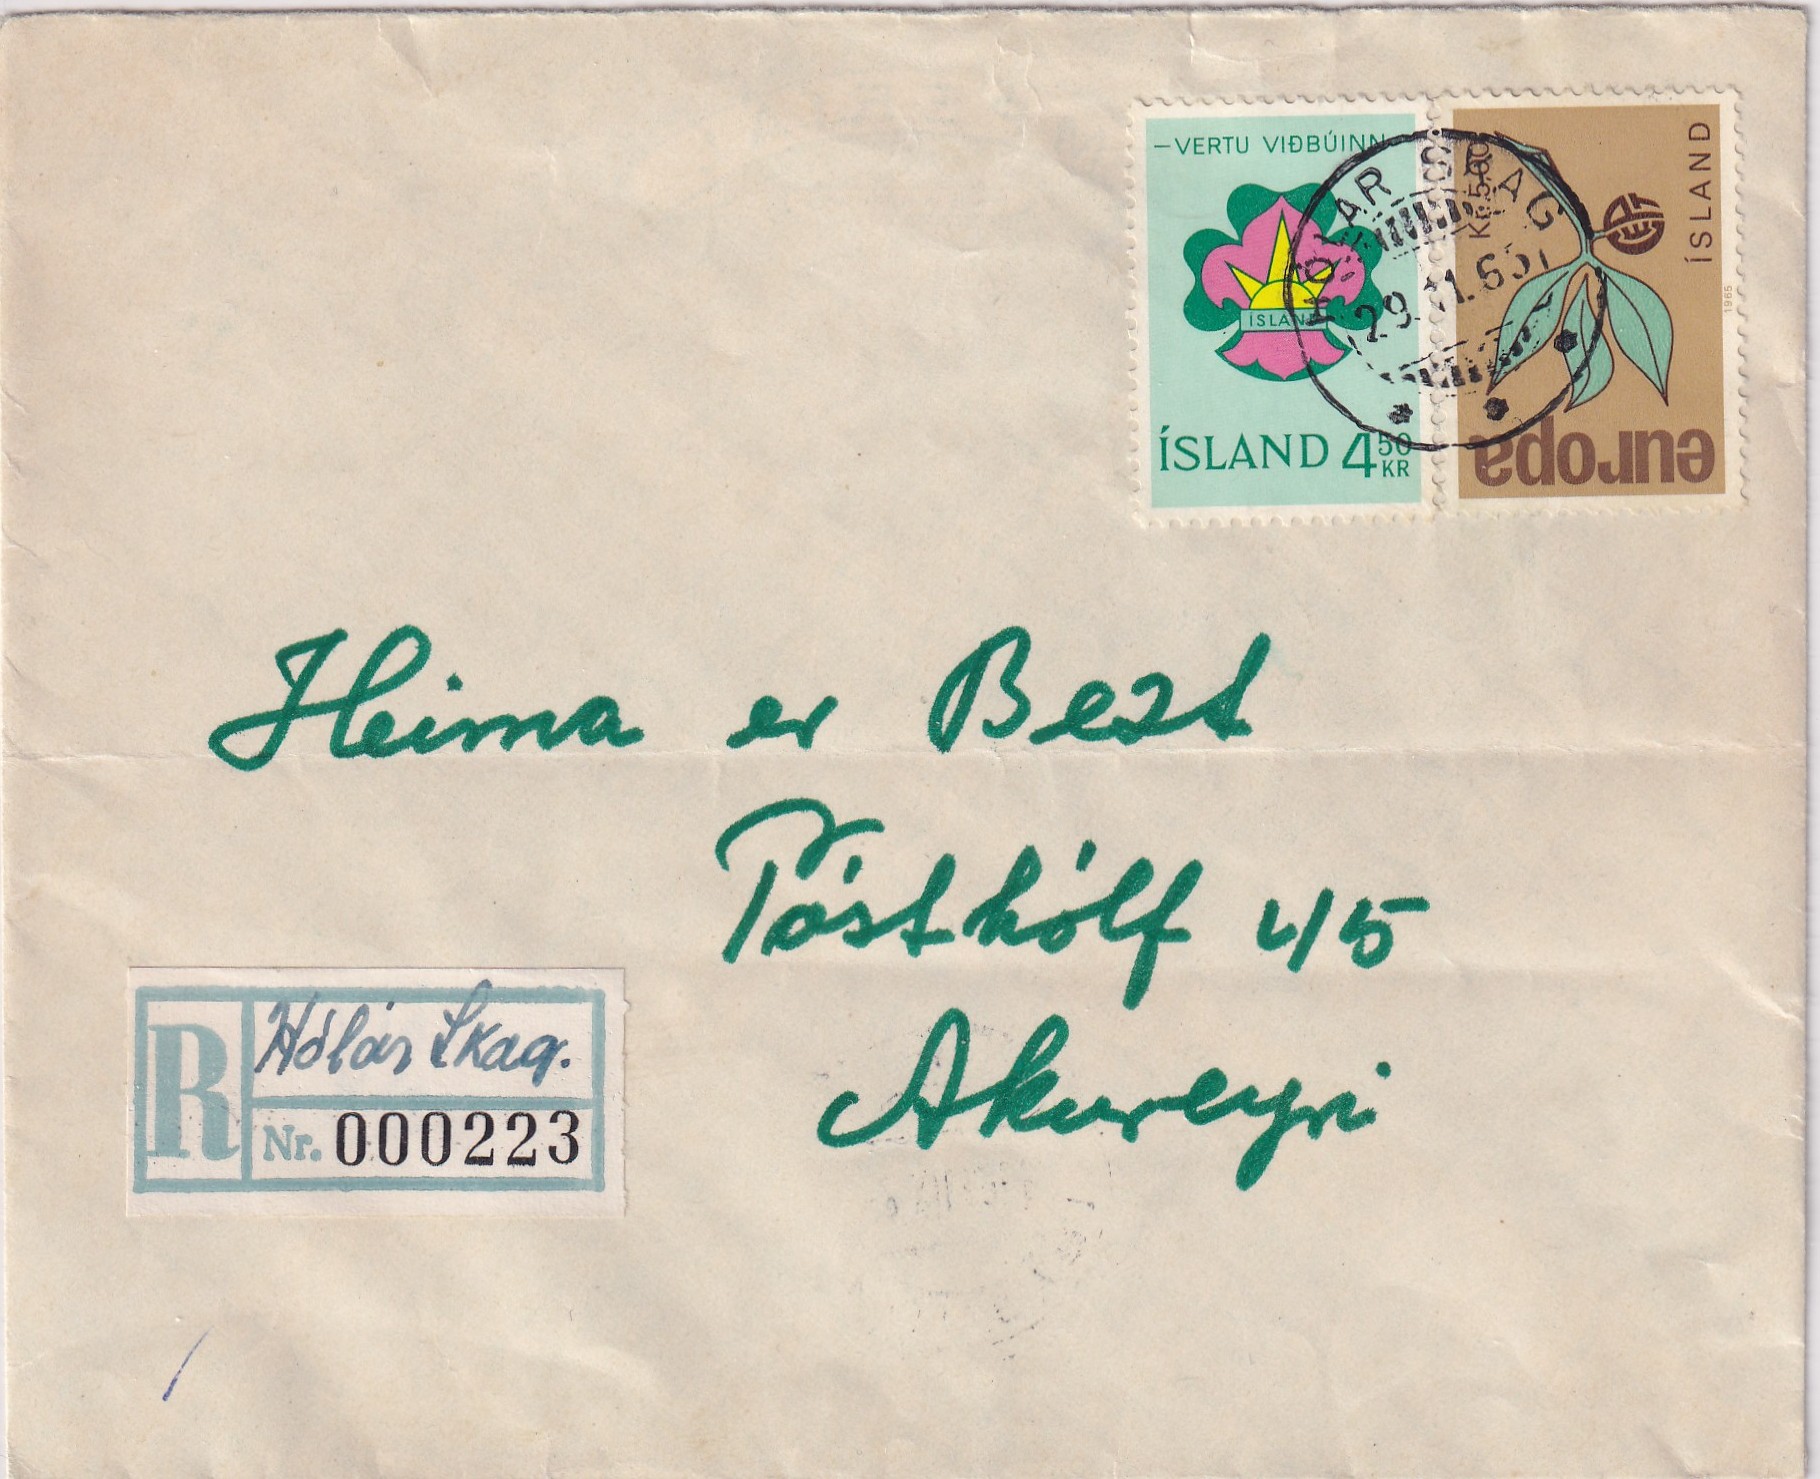 –VERTU VIÐBÚINN–
ÍSLAND
ÍSLAND 4 50 KR
Kr. 5.00
ÍSLAND
CEPT
1965
europa
HÓLAR SKAG
29.11.65
Heima er Bezt
Pósthólf 45
Akureyri
R
Hólar Skag.
Nr. 000223